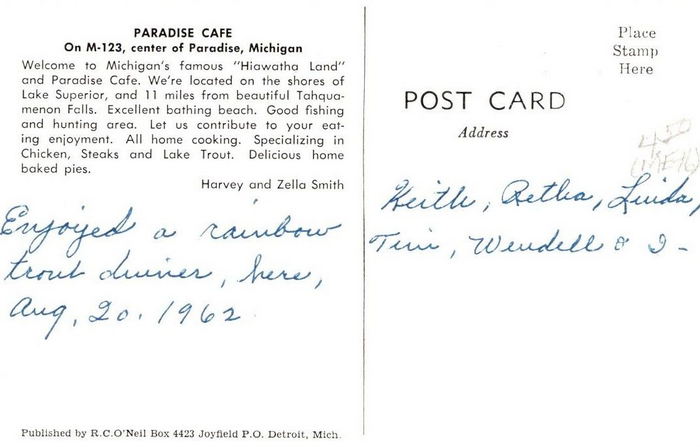 PARADISE CAFE
On M-123, center of Paradise, Michigan
Welcome to Michigan's famous "Hiawatha Land"
and Paradise Cafe. We're located on the shores of
Lake Superior, and 11 miles from beautiful Tahqua-
menon Falls. Excellent bathing beach. Good fishing
and hunting area. Let us contribute to your eat-
ing enjoyment. All home cooking. Specializing in
Chicken, Steaks and Lake Trout. Delicious home
baked pies.
Harvey and Zella Smith
Enjoyed a rainbow
trout dinner, here,
Aug, 20, 1962.
Published by R.C.O'Neil Box 4423 Joyfield P.O. Detroit, Mich.
Place
Stamp
Here
POST CARD
Address
4.50
Keith, Retha, Linda,
Tim, Wendell & I -